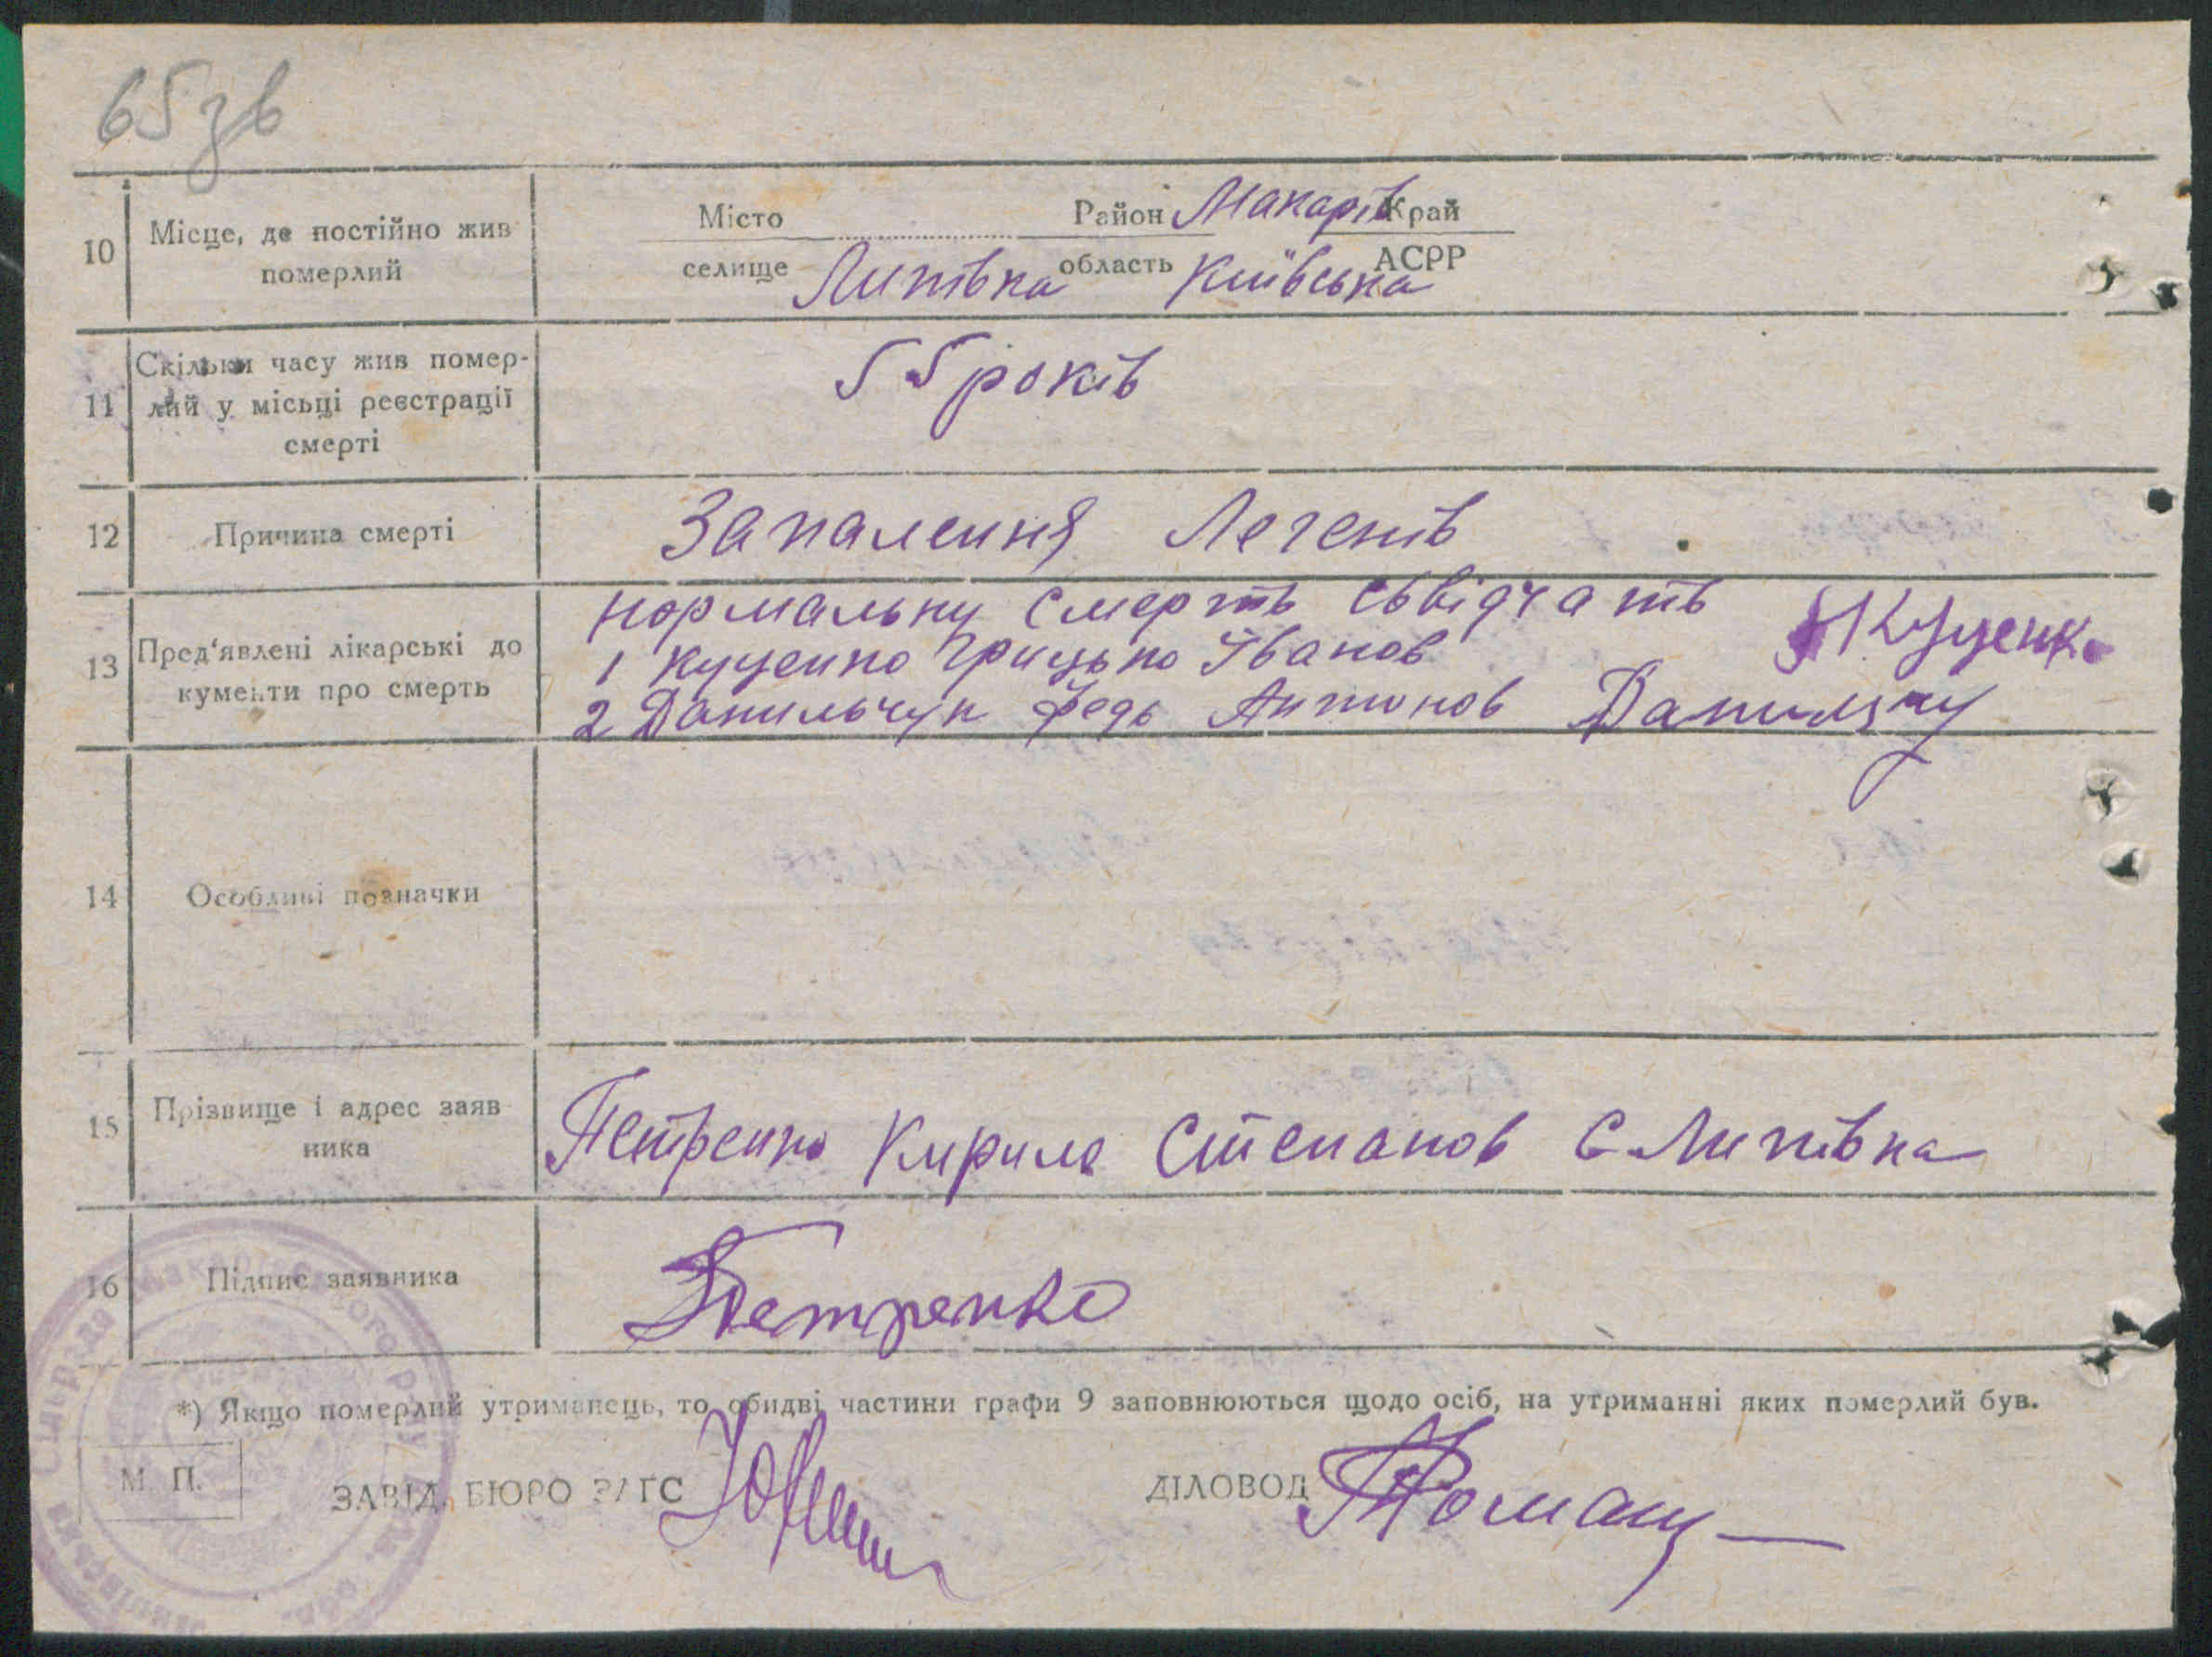 65 зв
10 Місце, де постійно жив померлий
Місто Район Макарів Край
селище Липівка область Київська АСРР
11 Скільки часу жив помер-
лий у місьці реєстрації
смерті
55 років
12 Причина смерті Запалення Легенів
13 Пред'явлені лікарські до
кументи про смерть
нормальну смерть сьвідчать
1 Куценко Грицько Іванов Куценко
2 Данильчук Федь Антонов Данильчу
14 Особливі позначки
15 Прізвище і адрес заяв
ника
Петренко Кирило Степанов с Липівка
16 Підпис заявника Петренко
*) Якщо померлий утриманець, то обидві частини графи 9 заповнюються щодо осіб, на утриманні яких померлий був.
М. П.
ЗАВІД. БЮРО ЗАГС ДІЛОВОД